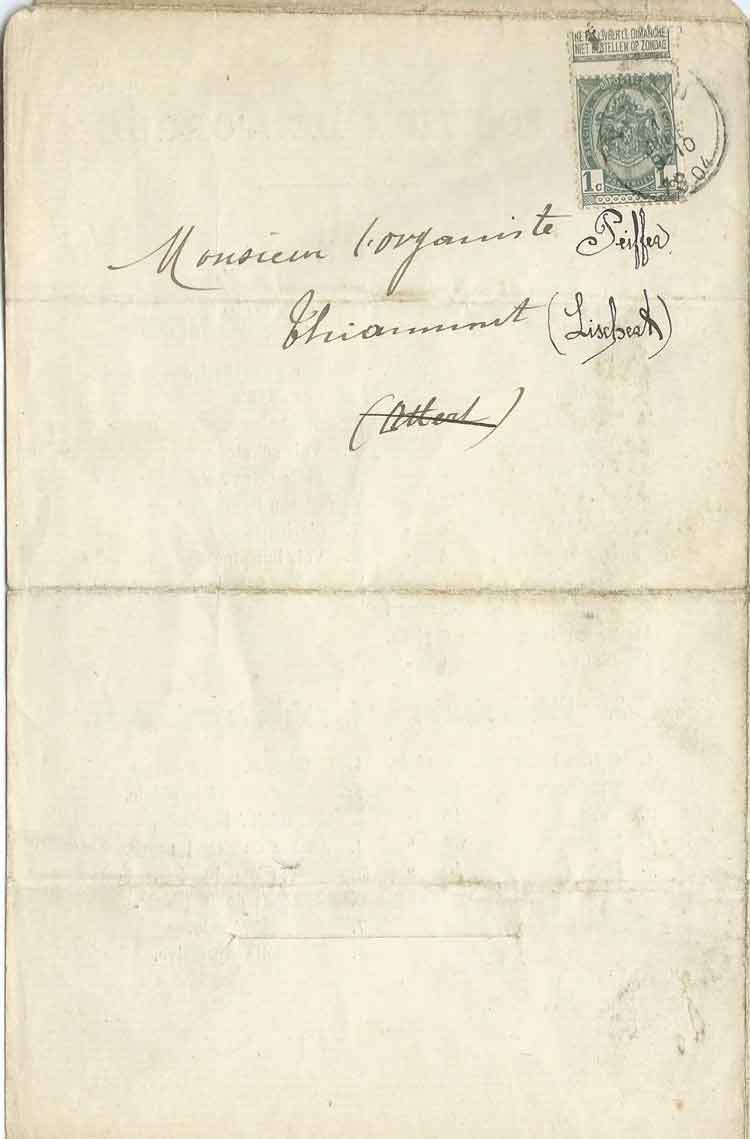 NE PAS LIVRER LE DIMANCHE
NIET BESTELLEN OP ZONDAG
1c 1c
10
04
Monsieur l'organiste Peiffer
Thiaumont (Lischert)
(Attert)